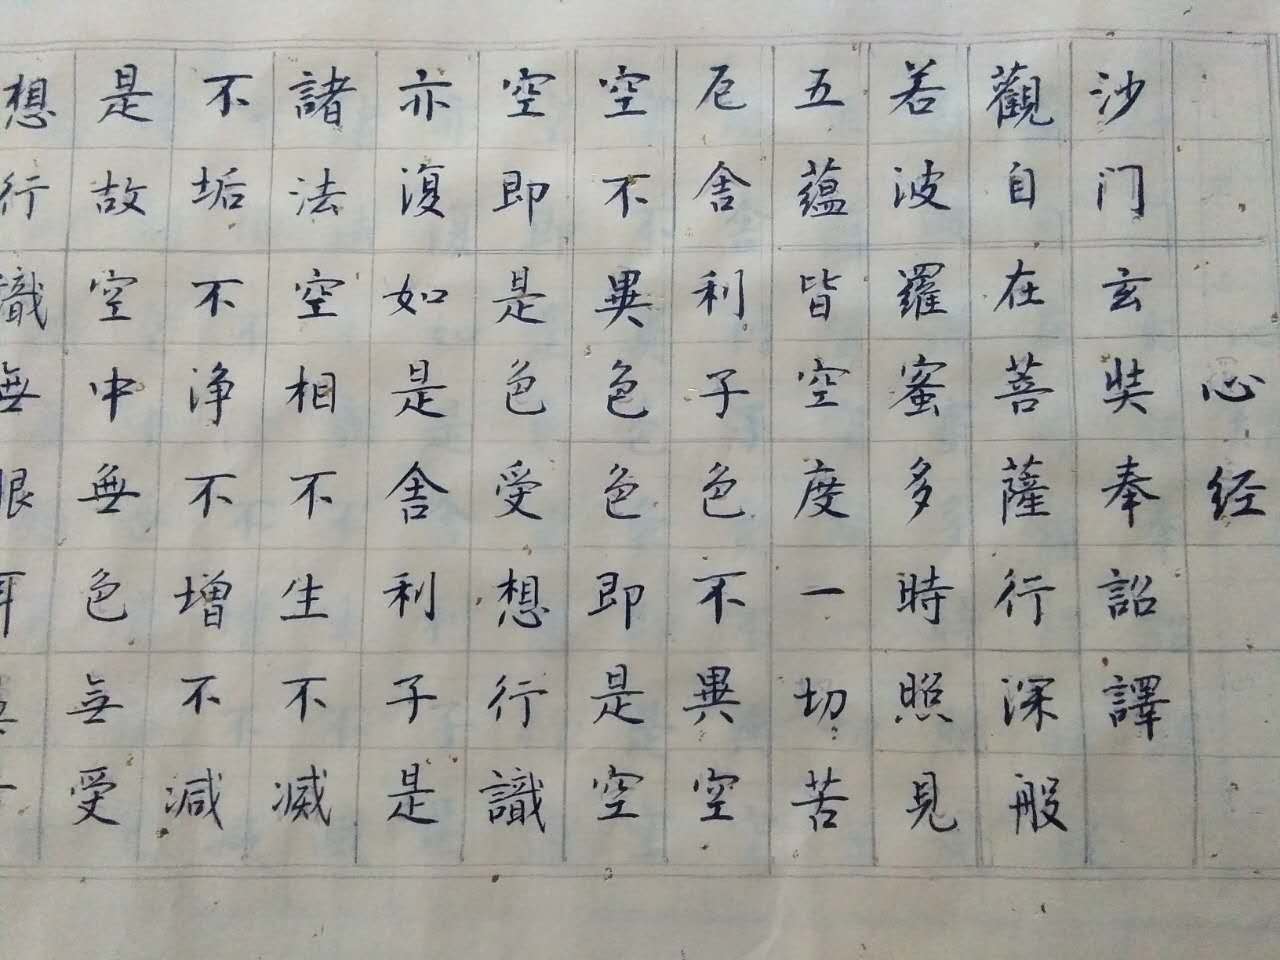 心经
沙门玄奘奉詔譯
觀自在菩薩行深般
若波羅蜜多時照見
五蘊皆空度一切苦
厄舍利子色不異空
空不異色色即是空
空即是色受想行識
亦復如是舍利子是
諸法空相不生不滅
不垢不净不增不減
是故空中無色無受
想行識無眼耳